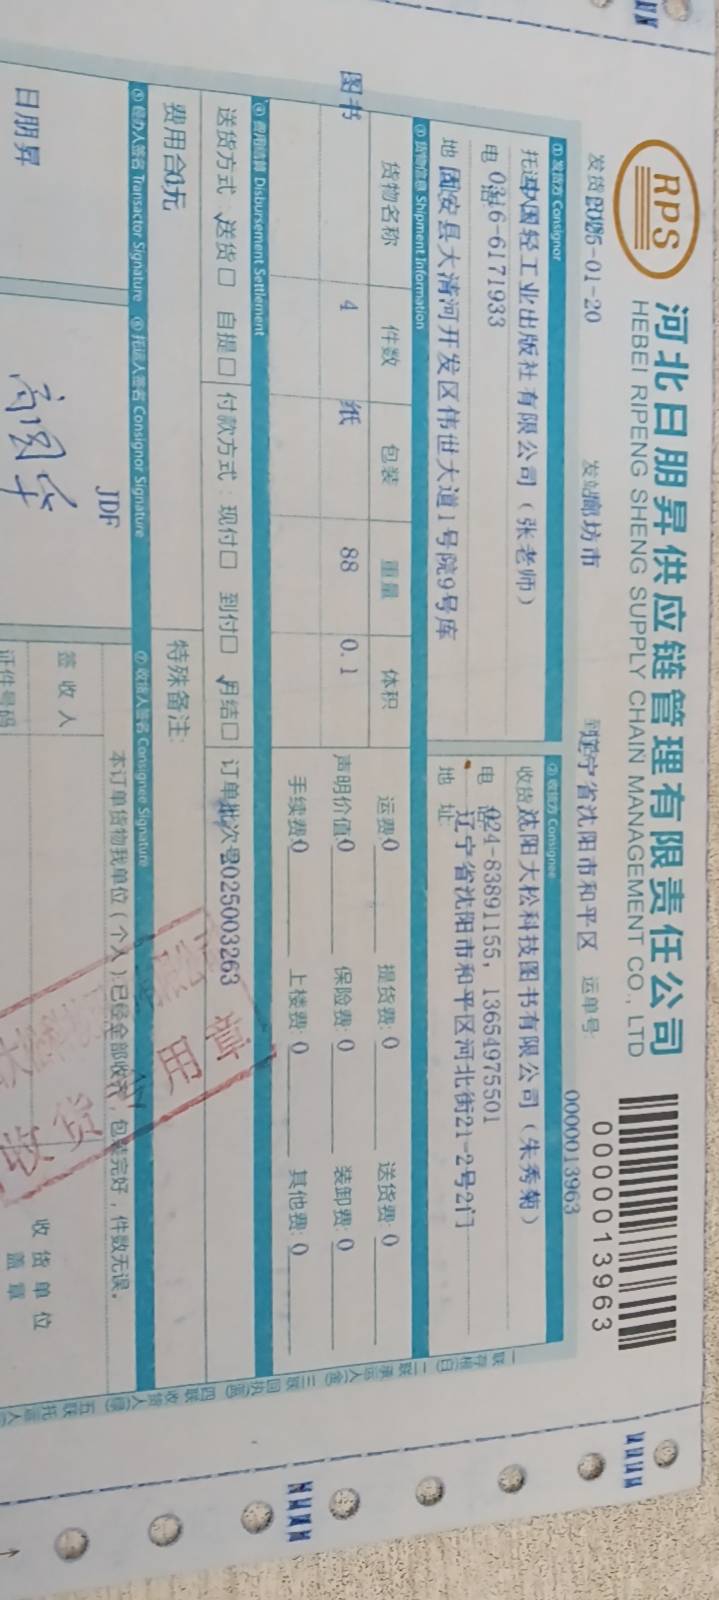 RPS
河北日朋昇供应链管理有限责任公司
HEBEI RIPENG SHENG SUPPLY CHAIN MANAGEMENT CO., LTD
0000013963
发货日期:2025-01-20 发站:廊坊市 到站:辽宁省沈阳市和平区 运单号: 0000013963
① 发货方 Consignor
托运人:中国轻工业出版社有限公司（张老师）
电 话:0316-6171933
地 址:固安县大清河开发区伟世大道1号院9号库
② 收货方 Consignee
收货人:沈阳大松科技图书有限公司（朱秀菊）
电 话:024-83891155, 13654975501
地 址:辽宁省沈阳市和平区河北街21-2号2门
③ 货物信息 Shipment Information
货物名称 件数 包装 重量 体积
图书 4 纸 88 0.1
运费:0 提货费:0 送货费:0
声明价值:0 保险费:0 装卸费:0
手续费:0 上楼费:0 其他费:0
④ 费用结算 Disbursement Settlement
送货方式: √送货□ 自提□ 付款方式: 现付□ 到付□ √月结□ 订单批次号:2025003263
费用合计:0元 特殊备注:
⑤ 经办人签名 Transactor Signature ⑥ 托运人签名 Consignor Signature ⑦ 收货人签名 Consignee Signature
日朋昇
JDF
本订单货物我单位（个人）已经全部收齐，包装完好，件数无误。
签收人
证件号码
收货单位
盖章
收货
专用章
一联存根(白) 二联承运人(金) 三联回执(蓝) 四联收货人(绿) 五联托运人